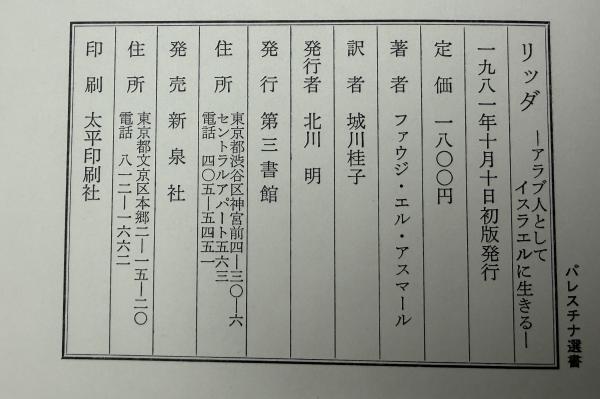 パレスチナ選書
リッダ
―アラブ人として
イスラエルに生きる―
一九八一年十月十日初版発行
定価 一八〇〇円
著者 ファウジ・エル・アスマール
訳者 城川桂子
発行者 北川 明
発行 第三書館
住所 東京都渋谷区神宮前四―三〇―六
セントラルアパート五六三
電話 四〇五―五四五一
発売 新泉社
住所 東京都文京区本郷二―一五―二〇
電話 八一二―一六六二
印刷 太平印刷社